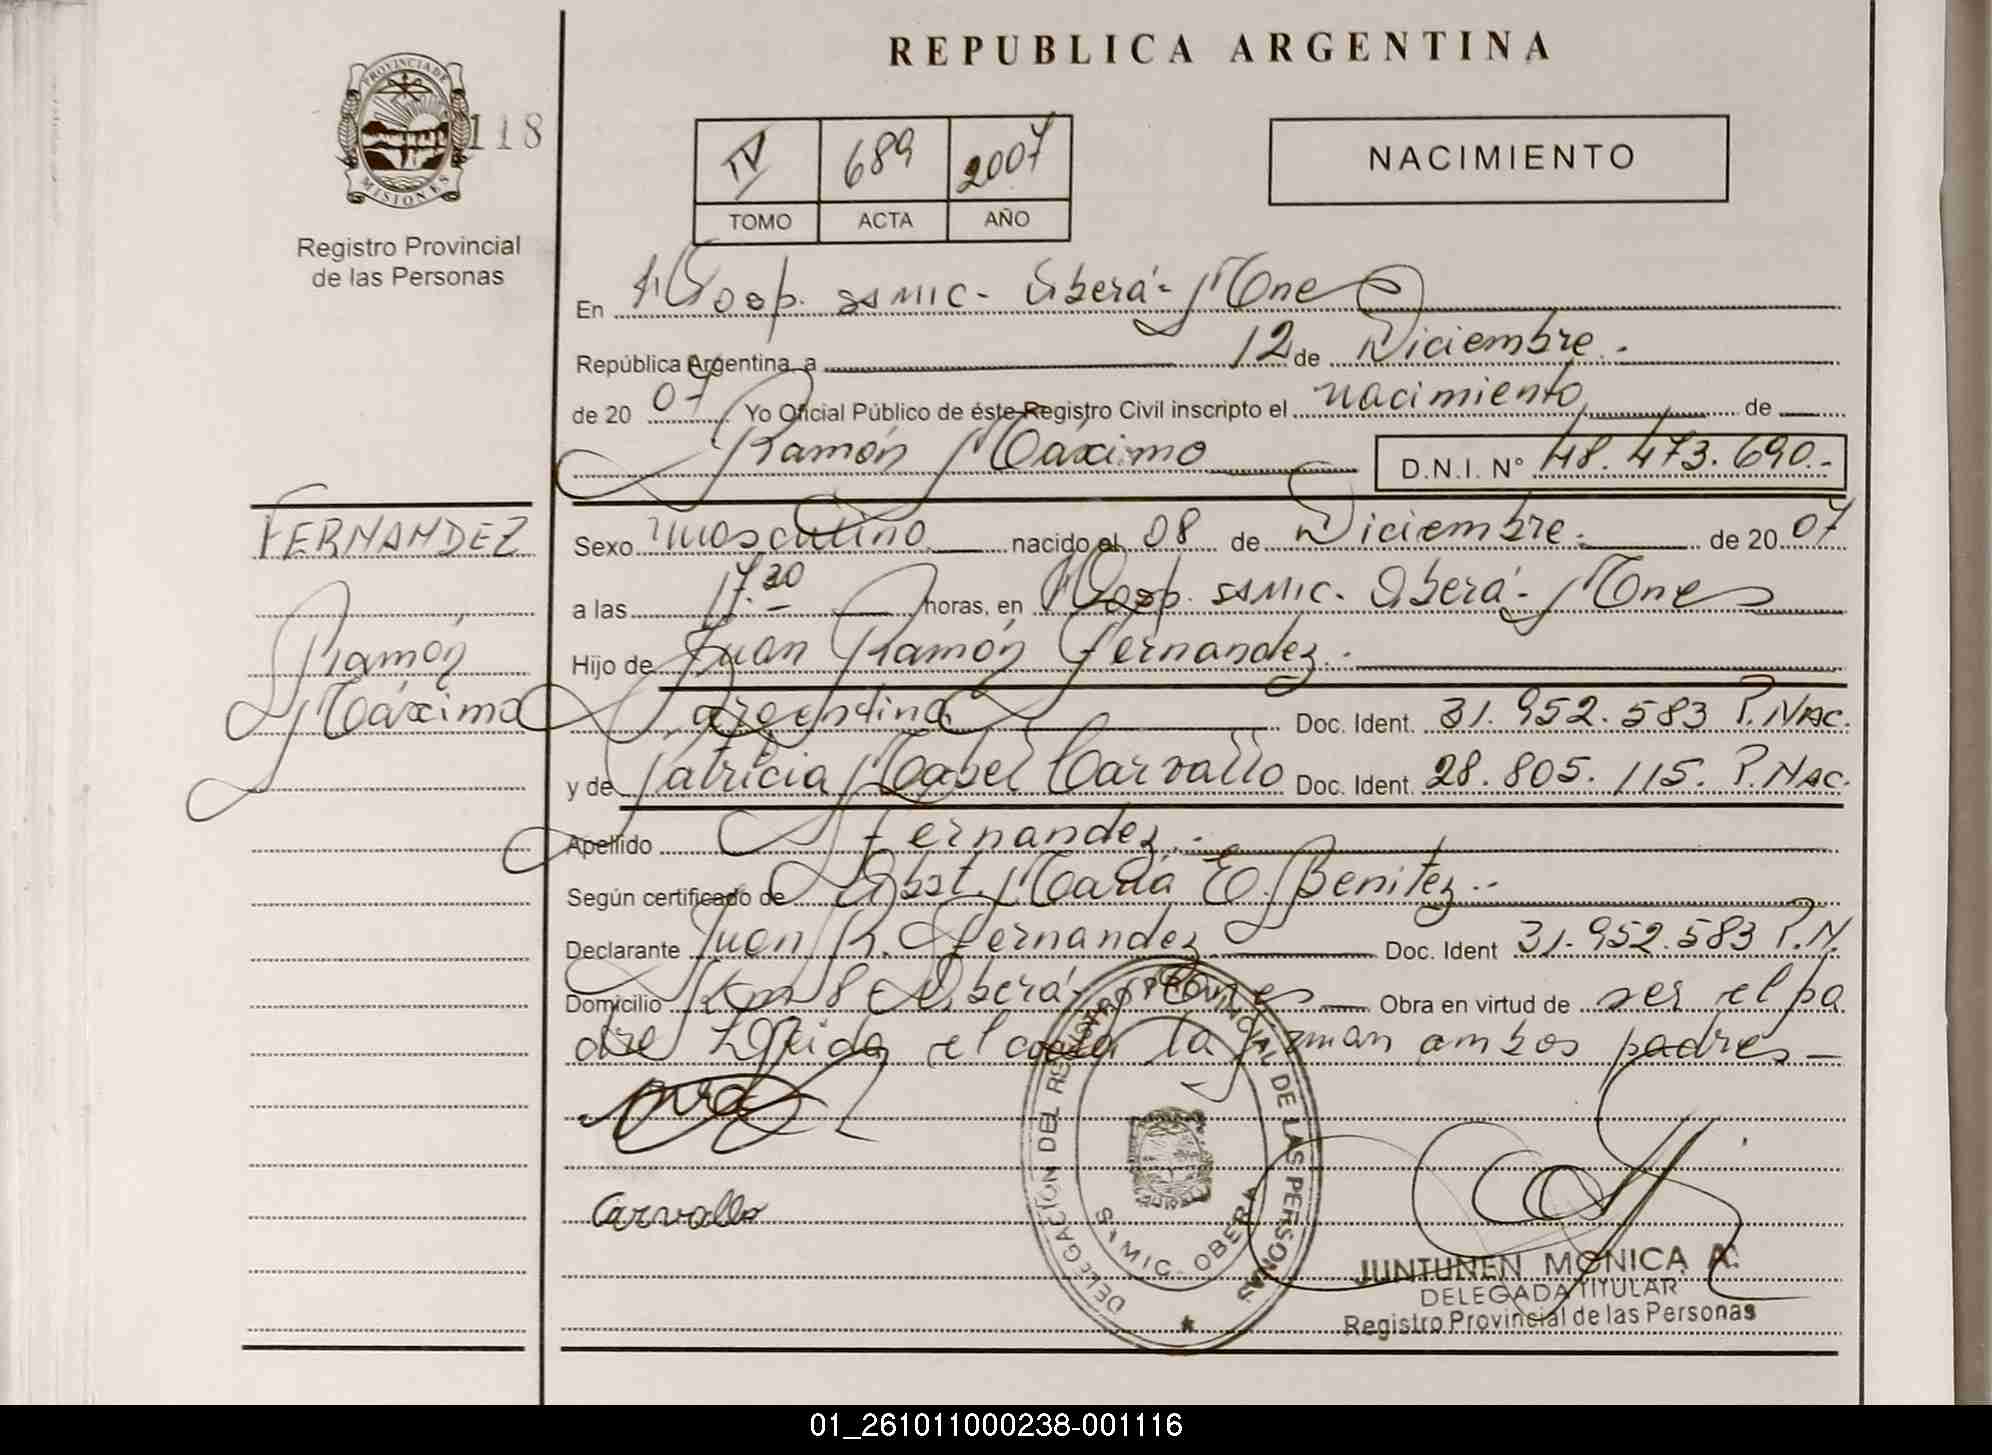 REPUBLICA ARGENTINA
PROVINCIA DE
MISIONES
118
Registro Provincial
de las Personas
IV 689 2007
TOMO ACTA AÑO
NACIMIENTO
En Hosp. SAMIC - Oberá - Mnes
República Argentina, a 12 de Diciembre.-
de 20 07 Yo Oficial Público de éste Registro Civil inscripto el nacimiento de
Ramón Máximo D.N.I. N° 48.473.690.-
FERNANDEZ
Ramón
Máximo
Sexo masculino nacido el 08 de Diciembre.- de 20 07
a las 17.30 horas, en Hosp. SAMIC. Oberá - Mnes
Hijo de Juan Ramón Fernandez.-
argentina Doc. Ident. 31.952.583 P. NAC.
y de Patricia Mabel Carvallo Doc. Ident. 28.805.115. P. NAC.
Apellido Fernandez.-
Según certificado de Obst. María E. Benitez.-
Declarante Juan R. Fernandez Doc. Ident 31.952.583 P.N.
Domicilio Km 8 Oberá - Mnes Obra en virtud de ser el pa
dre Leída el acta la firman ambos padres -
Carvallo
DELEGACIÓN DEL REGISTRO PROVINCIAL DE LAS PERSONAS
SAMIC - OBERA
JUNTUNEN MONICA A.
DELEGADA TITULAR
Registro Provincial de las Personas
01_261011000238-001116